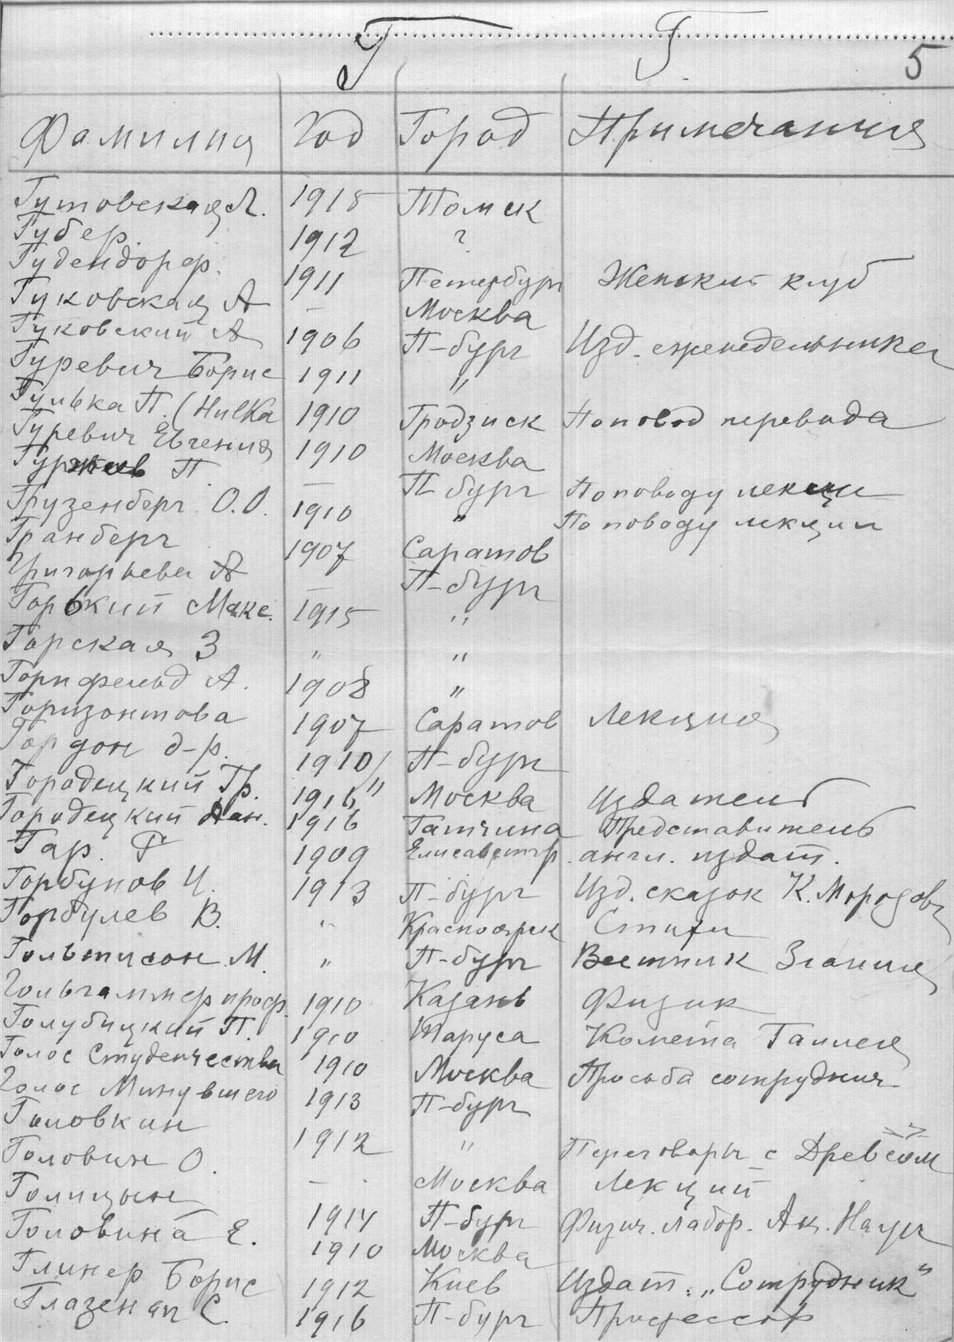 Г Г. 5
Фамилия Год Город Примечания
Гутовская Л. 1915 Томск
Губер. 1912 ?
Гудендорф. 1911 Петербург Женский клуб
Гуковская А — Москва
Гуковский А 1906 П-бург Изд. еженедельника
Гуревич Борис 1911 "
Гулька П. (Hulka 1910 Гродзиск По повод перевода
Гуревич Евгения 1910 Москва
П. — П бург По поводу лекции
Грузенберг О.О. 1910 " По поводу лекции
Гранберг 1907 Саратов
Григорьева А — П-бург
Горький Макс. 1915 "
Горская З " "
Горнфельд А. 1908 "
Горизонтова 1907 Саратов Лекция
Гордон д-р. 1910 П-бург
Городецкий Гр. 1916 " Москва Издатель
Городецкий Дан. 1916 Гатчина Представитель
Гар. Г 1909 Елисаветгр. англ. издат.
Горбунов И. 1913 П-бург Изд. сказок К.
Горбулев В. " Красноярск Стихи
М. " П-бург Вестник Знания
Гольдгаммер проф. 1910 Казань Физик
Голубицкий П. 1910 Таруса Комета Галлея
Голос Студенчества 1910 Москва Просьба сотруднич.
Голос Минувшего 1913 П-бург
Головкин 1912 " Переговоры с Древсом
Головин О. — Москва Лекций
Голицын 1914 П-бург Физич. Лабор. Ак. Наук
Головина Е. 1910 Москва
Глинер Борис 1912 Киев Издат. „Сотрудник"
Глазенап С. 1916 П-бург Профессор